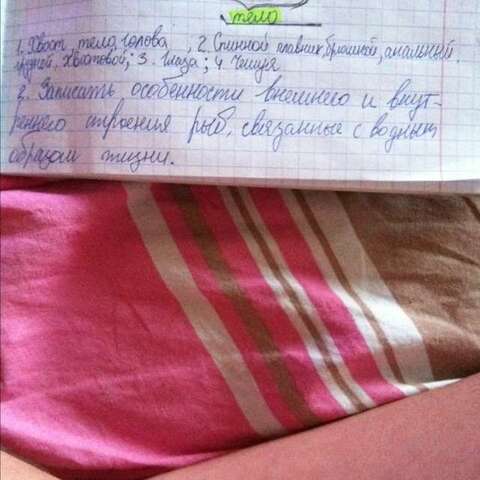 тело
1. Хвост, тело, голова, 2. Спинной плавник, брюшной, анальный,
грудной, хвостовой; 3. Глаза; 4. Чешуя
2. Записать особенности внешнего и внут-
реннего строения рыб, связанные с водным
образом жизни.